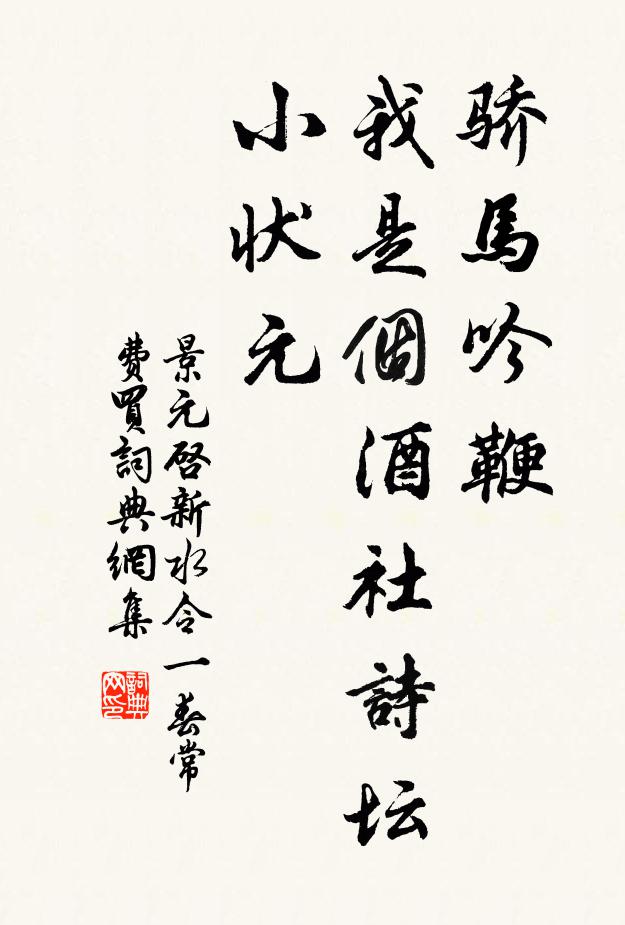 骄馬吟鞭
我是個酒社詩坛
小状元
景元啓新水令一春常
費買詞典網集
詞典
网印